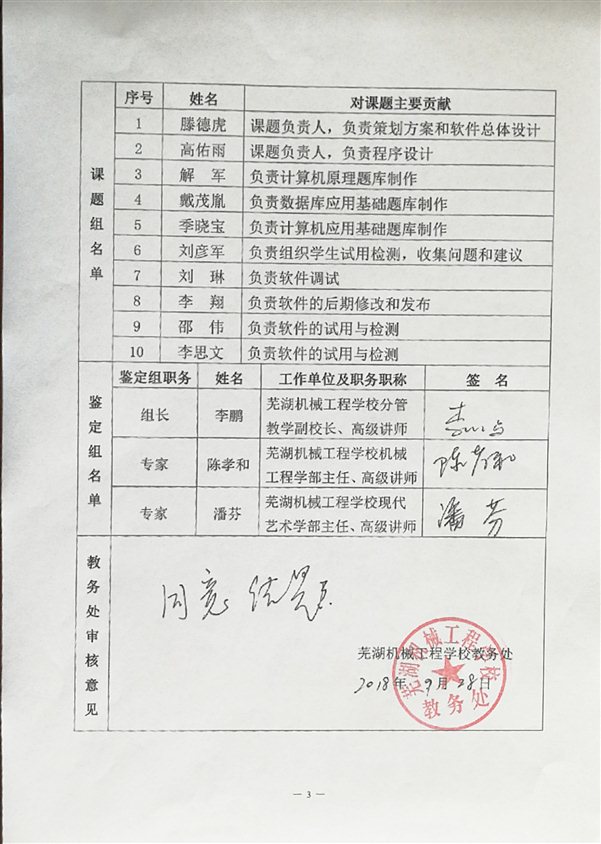 序号 姓名 对课题主要贡献
课题组名单
1 滕德虎 课题负责人，负责策划方案和软件总体设计
2 高佑雨 课题负责人，负责程序设计
3 解 军 负责计算机原理题库制作
4 戴茂胤 负责数据库应用基础题库制作
5 季晓宝 负责计算机应用基础题库制作
6 刘彦军 负责组织学生试用检测，收集问题和建议
7 刘 琳 负责软件调试
8 李 翔 负责软件的后期修改和发布
9 邵 伟 负责软件的试用与检测
10 李思文 负责软件的试用与检测
鉴定组名单
鉴定组职务 姓名 工作单位及职务职称 签 名
组长 李鹏 芜湖机械工程学校分管
教学副校长、高级讲师
专家 陈孝和 芜湖机械工程学校机械 陈孝和
工程学部主任、高级讲师
专家 潘芬 芜湖机械工程学校现代 潘芬
艺术学部主任、高级讲师
教务处审核意见
同意结题
芜湖机械工程学校教务处
2018年9月28日
芜湖机械工程学校
教务处
— 3 —